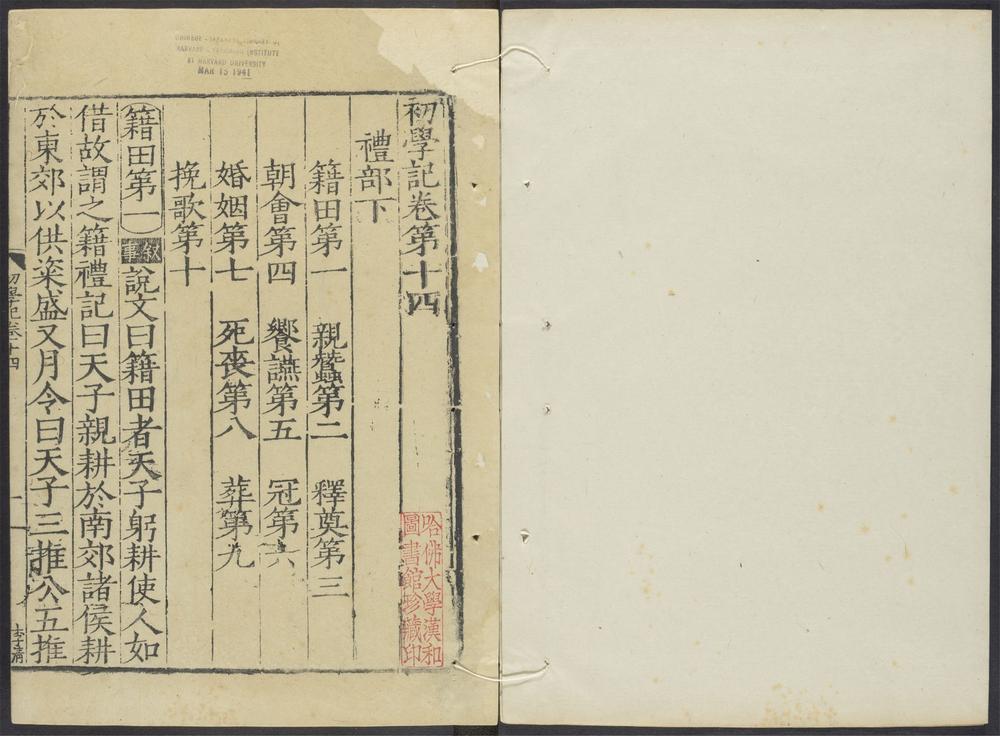 初學記卷第十四
禮部下
籍田第一 親蠶第二 釋奠第三
朝會第四 饗讌第五 冠第六
婚姻第七 死喪第八 葬第九
挽歌第十
籍田第一 敘事 說文曰籍田者天子躬耕使人如
借故謂之籍禮記曰天子親耕於南郊諸侯耕
於東郊以供粢盛又月令曰天子三推公五推
初學記卷十四
一
哈佛大學漢和
圖書館珍藏印
HARVARD-YENCHING INSTITUTE
AT HARVARD UNIVERSITY
MAR 15 1941